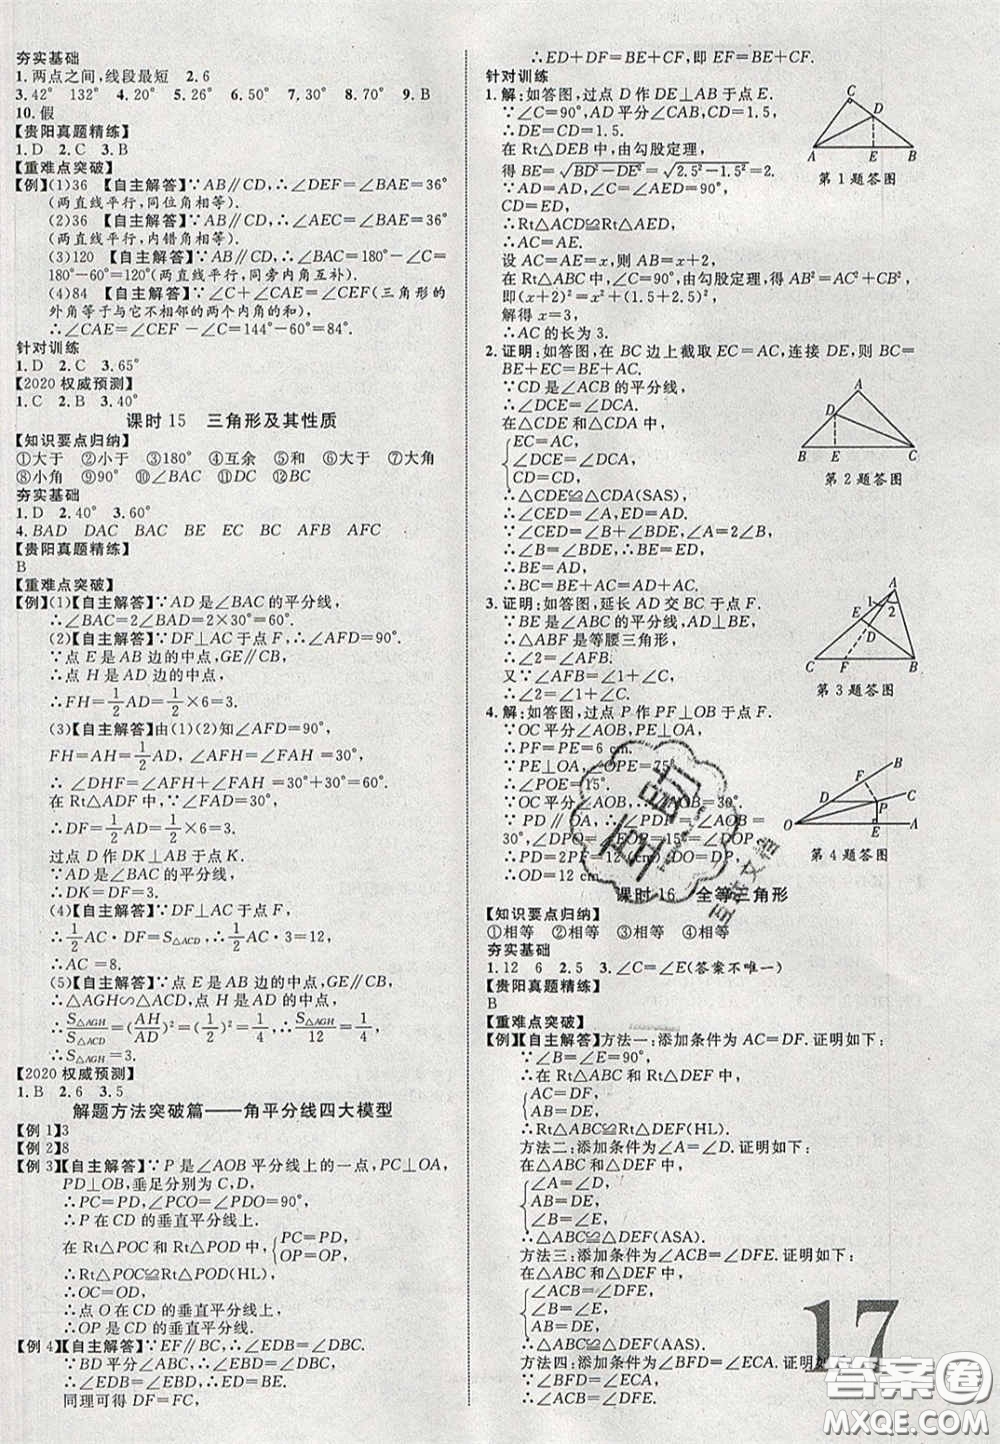 夯实基础
1.两点之间,线段最短 2.6
3.42° 132° 4.20° 5.26° 6.50° 7.30° 8.70° 9.B
10.假
【贵阳真题精练】
1.D 2.C 3.B
【重难点突破】
【例】(1)36 【自主解答】∵AB∥CD,∴∠DEF=∠BAE=36°
(两直线平行,同位角相等).
(2)36 【自主解答】∵AB∥CD,∴∠AEC=∠BAE=36°
(两直线平行,内错角相等).
(3)120 【自主解答】∵AB∥CD,∴∠BAC=180°-∠C=
180°-60°=120°(两直线平行,同旁内角互补).
(4)84 【自主解答】∵∠C+∠CAE=∠CEF(三角形的
外角等于与它不相邻的两个内角的和),
∴∠CAE=∠CEF-∠C=144°-60°=84°.
针对训练
1.D 2.C 3.65°
【2020权威预测】
1.C 2.B 3.40°
课时15 三角形及其性质
【知识要点归纳】
①大于 ②小于 ③180° ④互余 ⑤和 ⑥大于 ⑦大角
⑧小角 ⑨90° ⑩∠BAC ⑪DC ⑫BC
夯实基础
1.D 2.40° 3.60°
4.BAD DAC BAC BE EC BC AFB AFC
【贵阳真题精练】
B
【重难点突破】
【例】(1)【自主解答】∵AD是∠BAC的平分线,
∴∠BAC=2∠BAD=2×30°=60°.
(2)【自主解答】∵DF⊥AC于点F,∴∠AFD=90°.
∵点E是AB边的中点,GE∥BC,
∴点H是AD边的中点,
∴FH=1/2AD=1/2×6=3.
(3)【自主解答】由(1)(2)知∠AFD=90°,
FH=AH=3,∴∠AFH=∠FAH=30°,
∴∠DHF=∠AFH+∠FAH=30°+30°=60°.
在Rt△ADF中,∵∠CAD=30°,
∴DF=1/2AD=1/2×6=3.
过点D作DK⊥AB于点K.
∵AD是∠BAC的平分线,
∴DK=DF=3.
(4)【自主解答】∵DF⊥AC于点F,
∴1/2AC·DF=S△ACD,∴1/2AC·3=12,
∴AC=8.
(5)【自主解答】∵点E是AB边的中点,GE∥BC,
∴△AGH∽△ACD,∵点H是AD边的中点,
∴S△AGH/S△ACD=(AH/AD)²=(1/2)²=1/4,∴S△AGH/12=1/4,
∴S△AGH=3.
【2020权威预测】
1.B 2.6 3.5
解题方法突破篇——角平分线四大模型
【例1】3
【例2】8
【例3】【自主解答】∵P是∠AOB平分线上的一点,PC⊥OA,
PD⊥OB,垂足分别为C,D,
∴PC=PD,∠PCO=∠PDO=90°,
∴P在CD的垂直平分线上.
在Rt△POC和Rt△POD中,{PC=PD, OP=OP,
∴Rt△POC≌Rt△POD(HL),
∴OC=OD,
∴点O在CD的垂直平分线上,
∴OP是CD的垂直平分线.
【例4】【自主解答】∵EF∥BC,∴∠EDB=∠DBC.
∵BD平分∠ABC,∴∠EBD=∠DBC,
∴∠EDB=∠EBD,∴ED=BE.
同理可得DF=FC,
∴ED+DF=BE+CF,即EF=BE+CF.
针对训练
1.解:如答图,过点D作DE⊥AB于点E.
∵∠C=90°,AD平分∠CAB,CD=1.5,
∴DE=CD=1.5.
在Rt△DEB中,由勾股定理,
得BE=√BD²-DE²=√2.5²-1.5²=2.
∵AD=AD,∠C=∠AED=90°,
CD=ED,
∴Rt△ACD≌Rt△AED,
∴AC=AE.
设AC=AE=x,则AB=x+2,
在Rt△ABC中,∠C=90°,由勾股定理,得AB²=AC²+CB²,
即(x+2)²=x²+(1.5+2.5)²,
解得x=3,
∴AC的长为3.
C D A E B
第1题答图
2.证明:如答图,在BC边上截取EC=AC,连接DE,则BC=
BE+EC=BE+AC.
∵CD是∠ACB的平分线,
∴∠DCE=∠DCA.
在△CDE和△CDA中
{EC=AC, ∠DCE=∠DCA, CD=CD,
∴△CDE≌△CDA(SAS),
∴∠CED=∠A.
∵∠CED=∠B+∠BDE,∠A=2∠B,
∴∠B=∠BDE,∴BE=DE,
∴BE=AD,
∴BC=BE+AC=AD+AC.
A D B E C
第2题答图
3.证明:如答图,延长AD交BC于点F.
∵BE是∠ABC的平分线,AD⊥BE,
∴△ABF是等腰三角形,
∴∠2=∠AFB.
又∵∠AFB=∠1+∠C,
∴∠2=∠1+∠C.
A 1 2 E D C F B
第3题答图
4.解:如答图,过点P作PF⊥OB于点F.
∵OC平分∠AOB,PE⊥OA,
∴PF=PE=6 cm.
∵PE⊥OA,∠OPE=75°,
∴∠POE=15°.
∵OC平分∠AOB,∴∠AOB=30°.
∵PD∥OA,∴∠PDF=∠AOB=
30°,∠DPO=∠POE=15°=∠DOP,
∴PD=2PF=12(cm),∠OD=PD,
∴OD=12 cm.
B F C D P O E A
第4题答图
课时16 全等三角形
【知识要点归纳】
①相等 ②相等 ③相等 ④相等
夯实基础
1.12 6 2.5 3.∠C=∠E(答案不唯一)
【贵阳真题精练】
B
【重难点突破】
【例】【自主解答】方法一:添加条件为AC=DF.证明如下:
∵∠B=∠E=90°,
∴在Rt△ABC和Rt△DEF中,
{AC=DF, AB=DE,
∴Rt△ABC≌Rt△DEF(HL).
方法二:添加条件为∠A=∠D.证明如下:
在△ABC和△DEF中,
{∠A=∠D, AB=DE, ∠B=∠E,
∴△ABC≌△DEF(ASA).
方法三:添加条件为∠ACB=∠DFE.证明如下:
在△ABC和△DEF中,
{∠ACB=∠DFE, ∠B=∠E, AB=DE,
∴△ABC≌△DEF(AAS).
方法四:添加条件为∠BFD=∠ECA.证明如
∵∠BFD=∠ECA,
∴∠ACB=∠DFE.
17
答案圈
MXQE.COM
互助
互助文档